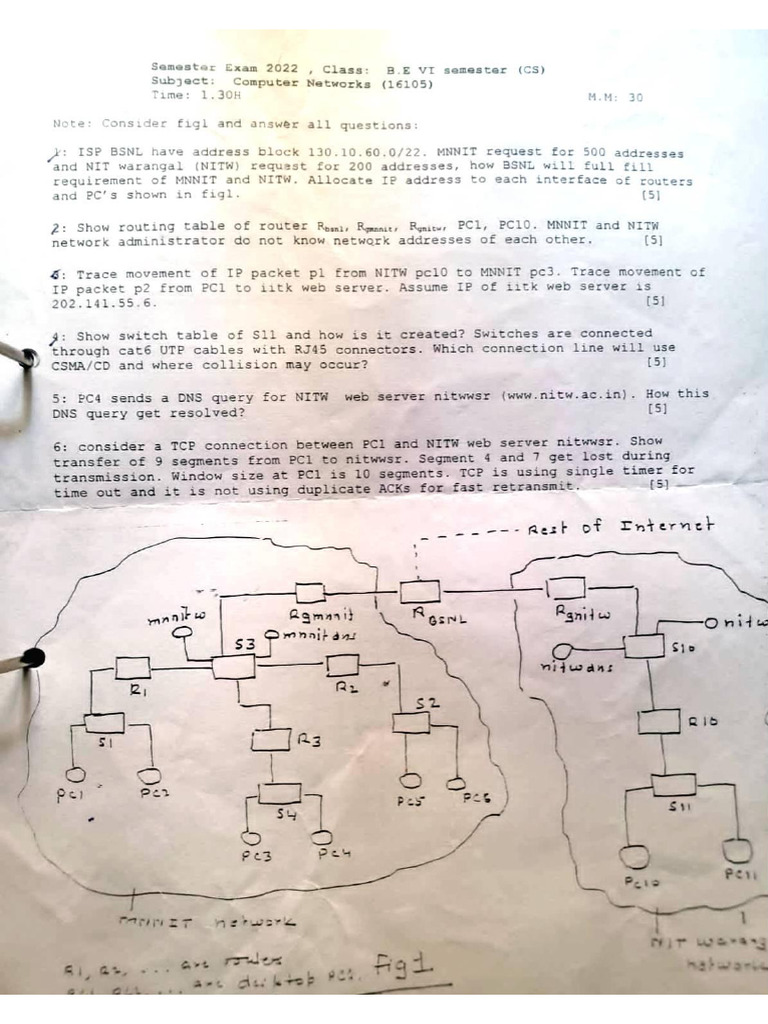 Semester Exam 2022 , Class: B.E VI semester (CS)
Subject: Computer Networks (16105)
Time: 1.30H M.M: 30
Note: Consider fig1 and answer all questions:
1: ISP BSNL have address block 130.10.60.0/22. MNNIT request for 500 addresses
and NIT warangal (NITW) request for 200 addresses, how BSNL will full fill
requirement of MNNIT and NITW. Allocate IP address to each interface of routers
and PC's shown in fig1. [5]
2: Show routing table of router Rbsnl, Rgmnnit, Rgnitw, PC1, PC10. MNNIT and NITW
network administrator do not know network addresses of each other. [5]
: Trace movement of IP packet p1 from NITW pc10 to MNNIT pc3. Trace movement of
IP packet p2 from PC1 to iitk web server. Assume IP of iitk web server is
202.141.55.6. [5]
4: Show switch table of S11 and how is it created? Switches are connected
through cat6 UTP cables with RJ45 connectors. Which connection line will use
CSMA/CD and where collision may occur? [5]
5: PC4 sends a DNS query for NITW web server nitwwsr (www.nitw.ac.in). How this
DNS query get resolved? [5]
6: consider a TCP connection between PC1 and NITW web server nitwwsr. Show
transfer of 9 segments from PC1 to nitwwsr. Segment 4 and 7 get lost during
transmission. Window size at PC1 is 10 segments. TCP is using single timer for
time out and it is not using duplicate ACKs for fast retransmit. [5]
Rest of Internet
Rgmnnit RBSNL Rgnitw
mnnitw S3 mnnitdns nitw
nitwdns S10
R1 R2
S1 S2 R3 R10
PC1 PC2 PC5 PC6 S4 S11
PC3 PC4 PC10 PC11
MNNIT network
NIT warang
network
R1, R2, ... are routers
... are desktop PCs. Fig1